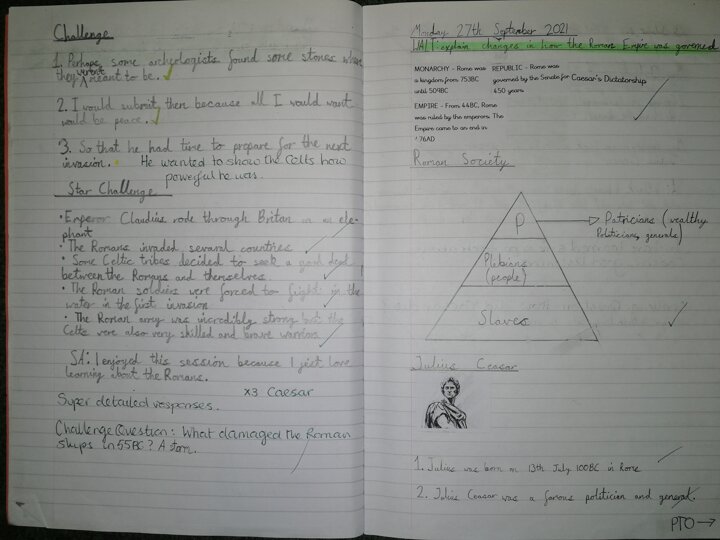 Challenge
1. Perhaps, some archeologists found some stones where
they weren't meant to be.
2. I would submit then because all I would want
would be peace.
3. So that he had time to prepare for the next
invasion. He wanted to show the Celts how
powerful he was.
Star Challenge
• Emperor Claudius rode through Britan on an ele-
phant
• The Romans invaded several countries
• Some Celtic tribes decided to seek a good deal
between the Romans and themselves
• The Roman soldiers were forced to fight in the
water in the first invasion
• The Roman army was incredibly strong but the
Celts were also very skilled and brave warriors
SA: I enjoyed this session because I just love
learning about the Romans.
x3 Caesar
Super detailed responses.
Challenge Question: What damaged the Roman
ships in 55BC? A storm.
Monday 27th September 2021
WALT explain changes in how the Roman Empire was governed
MONARCHY - Rome was
a kingdom from 753BC
until 509BC
REPUBLIC - Rome was
governed by the Senate for Caesar's Dictatorship
450 years
EMPIRE - From 44BC, Rome
was ruled by the emperors. The
Empire came to an end in
76AD
Roman Society
P
Patricians (wealthy
Politicians, generals)
Plibians
(people)
Slaves
Julius Ceasar
1. Julius was born on 13th July 100BC in Rome
2. Julius Ceasar was a famous politician and general.
PTO →